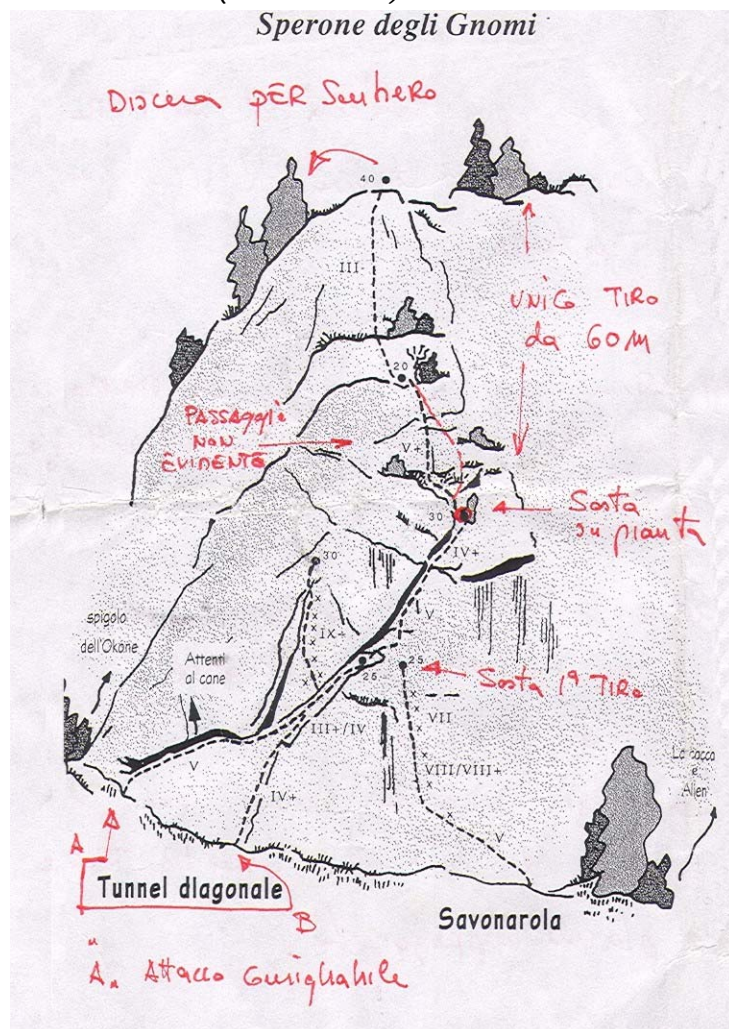 Sperone degli Gnomi
Discesa PER Sentiero
40
III
UNICO TIRO
da 60 M
20
PASSAGGIO
NON
EVIDENTE
V+
30
Sosta
su pianta
IV+
30
V
IX+
spigolo
dell'Okane
Attenti
al cane
25
25
Sosta 1° TIRO
VII
III+/IV
V
VIII/VIII+
La cacca
e
Alien
IV+
V
A
Tunnel diagonale
B
Savonarola
A. Attacco Consigliabile